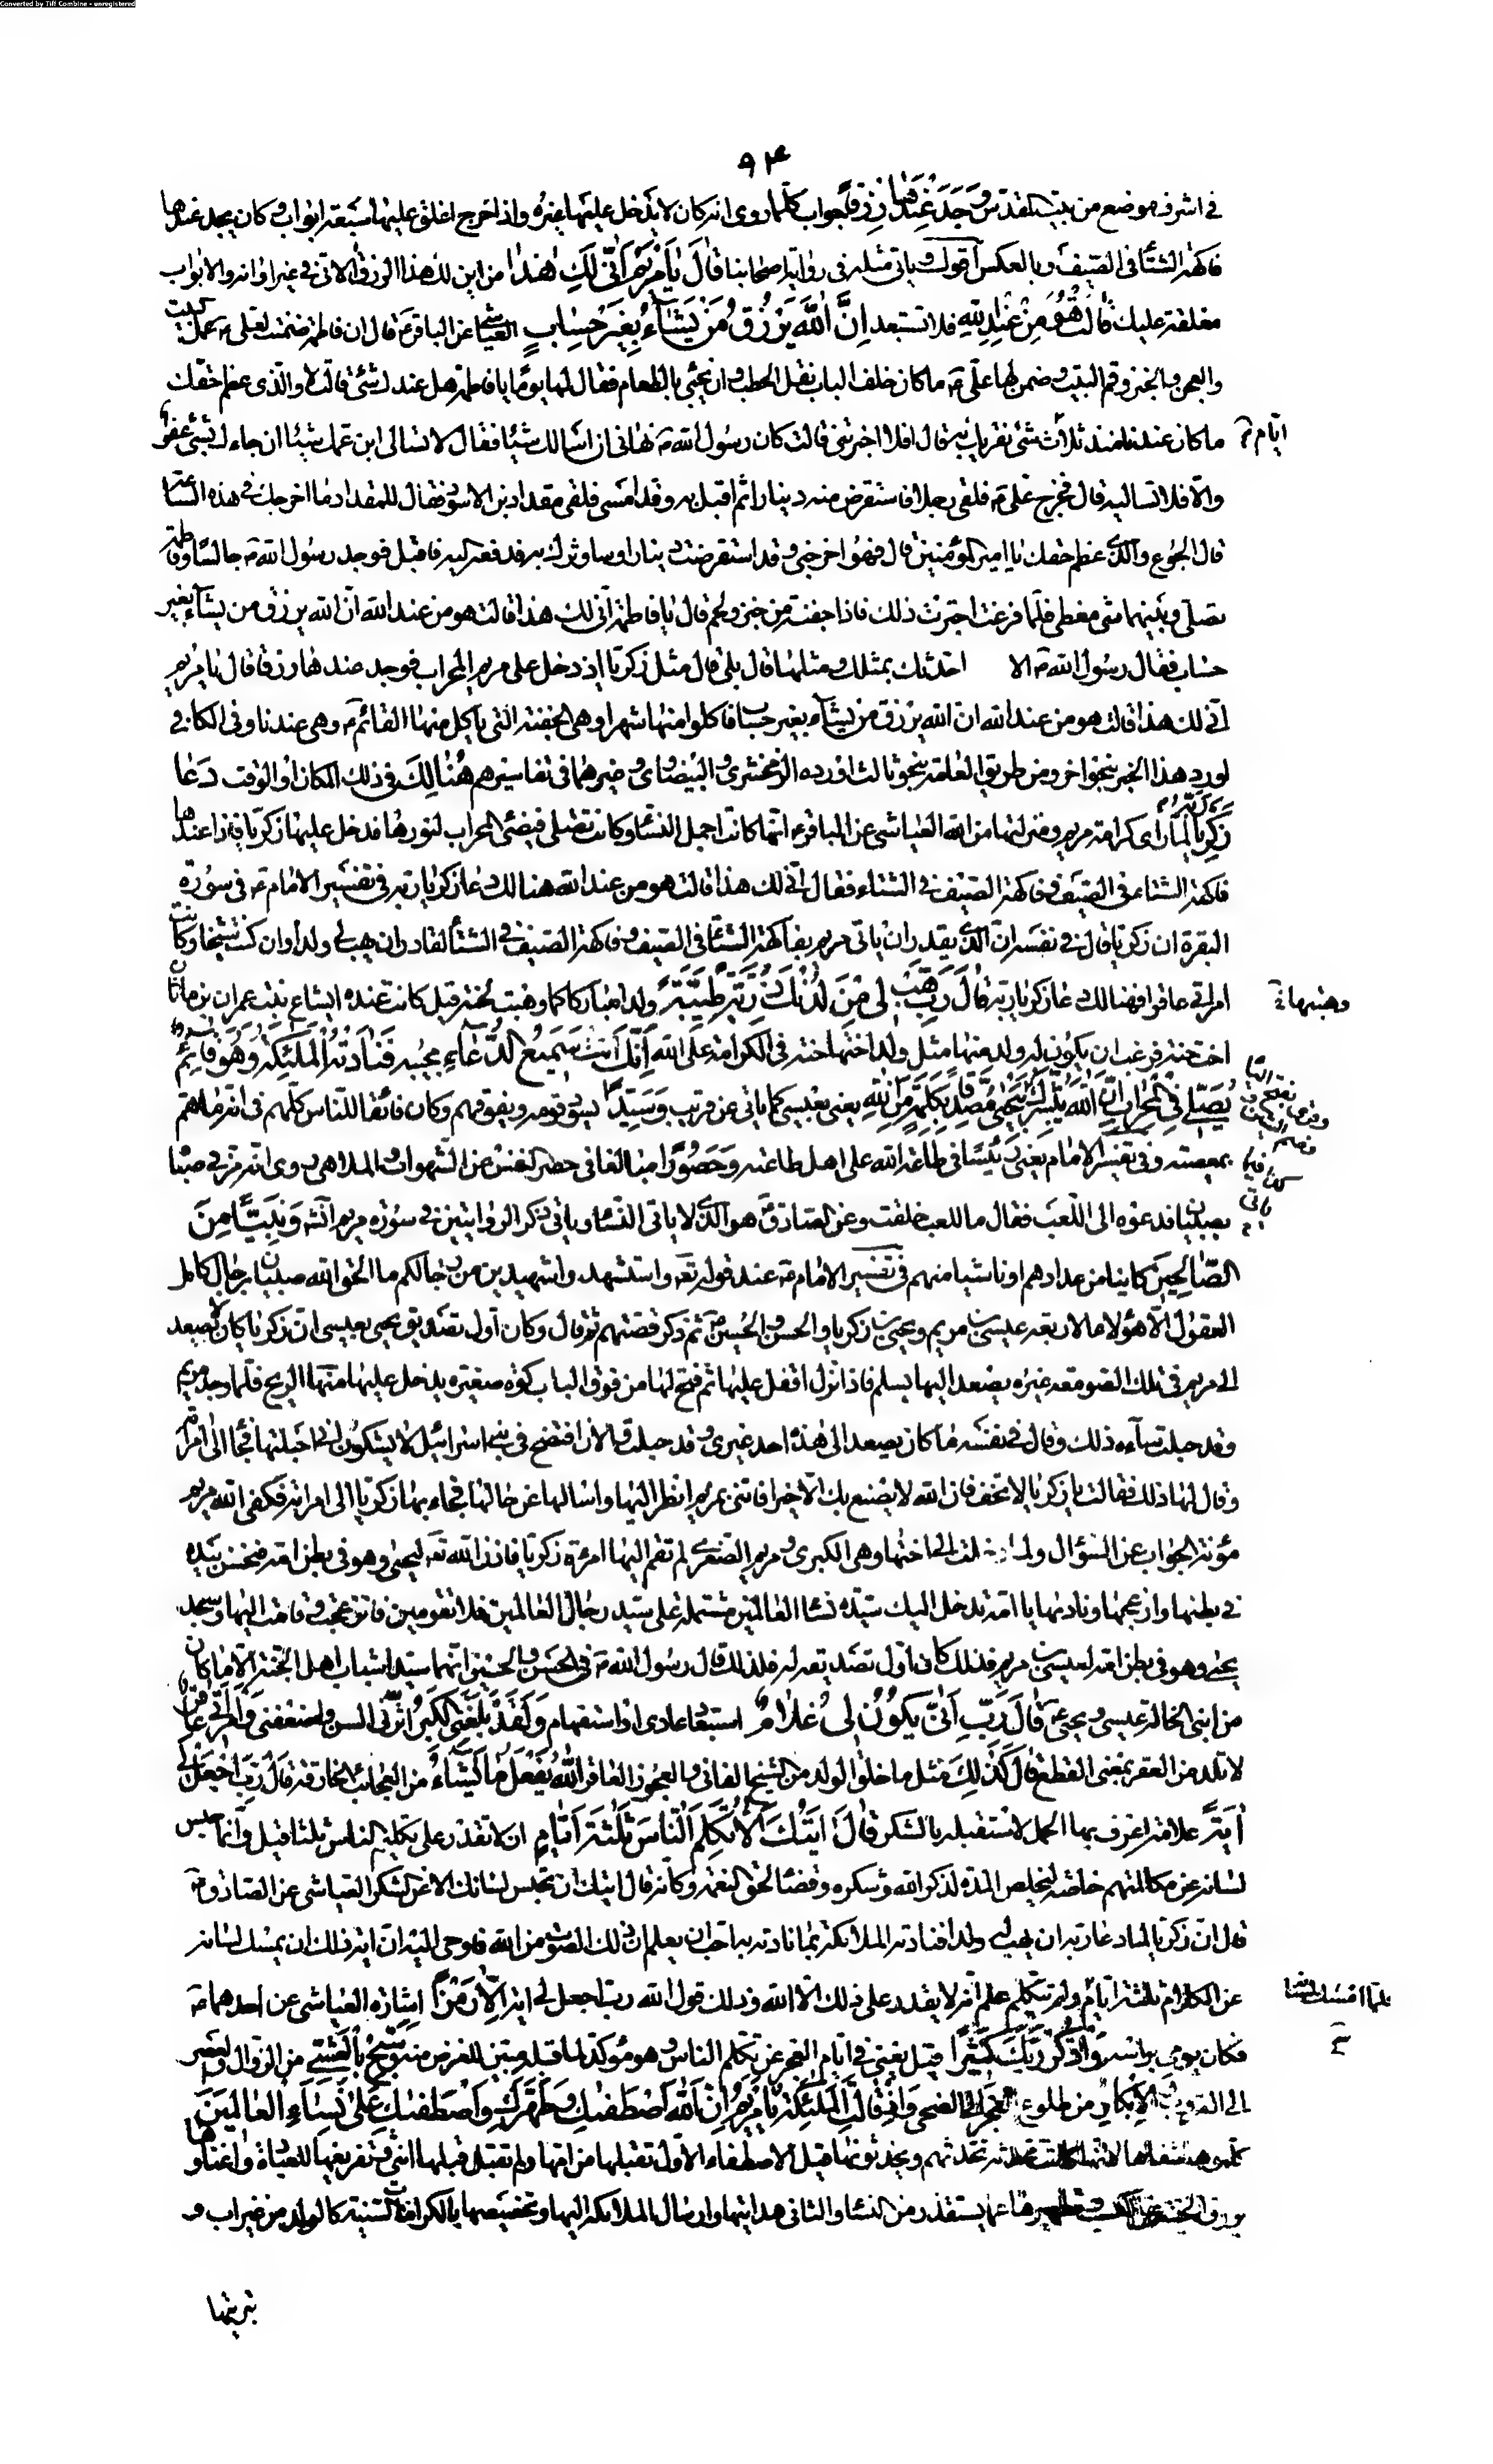 Converted by Tiff Combine - unregistered
٩٤
في اشرف موضع من بيت المقدس وَجَدَ عِنْدَهَا رِزْقًا جواب كلما روى انه كان لا يدخل عليها غيره واذا خرج اغلق عليها سبعة ابواب وكان يجد عندها
فاكهة الشتاء في الصيف وبالعكس اقول وياتي مثله في رواية اصحابنا قَالَ يَا مَرْيَمُ أَنّىٰ لَكِ هٰذَا من اين لك هذا الرزق الاتي في غير اوانه والابواب
مغلقة عليك قَالَتْ هُوَ مِنْ عِنْدِ اللّٰهِ فلا تستبعد اِنَّ اللّٰهَ يَرْزُقُ مَنْ يَشَاءُ بِغَيْرِ حِسَابٍ العياشي عن الباقر ع قال ان فاطمة ضمنت لعلي ع عمل البيت
والعجين والخبز وقم البيت وضمن لها علي ع ما كان خلف الباب نقل الحطب وان يجئ بالطعام فقال لها يوما يا فاطمة هل عندك شئ قالت لا والذي عظم حقك
ما كان عندنا منذ ثلاث شئ نقريك به قال افلا اخبرتني قالت كان رسول الله ص نهاني ان اسالك شيئا فقال لا تسالي ابن عمك شيئا ان جاءك بشئ عفوا
ايام
والا فلا تساليه قال فخرج علي ع فلقي رجلا فاستقرض منه دينارا ثم اقبل به وقد امسى فلقي مقداد بن الاسود فقال للمقداد ما اخرجك في هذه الساعة
قال الجوع والذي عظم حقك يا امير المؤمنين قال فهو اخرجني وقد استقرضت دينارا وساوثرك به فدفعه اليه فاقبل فوجد رسول الله ص جالسا وفاطمة
تصلي وبينهما شئ مغطى فلما فرغت اجترت ذلك فاذا جفنة من خبز ولحم قال يا فاطمة انى لك هذا قالت هو من عند الله ان الله يرزق من يشاء بغير
حساب فقال رسول الله ص الا احدثك بمثلك ومثلها قال بلى قال مثل زكريا اذ دخل على مريم المحراب فوجد عندها رزقا قال يا مريم
انى لك هذا قالت هو من عند الله ان الله يرزق من يشاء بغير حساب فاكلوا منها شهرا وهي الجفنة التي ياكل منها القائم ع وهي عندنا وفي الكافي
اورد هذا الخبر بنحو اخر ومن طريق العامة بنحو ثالث اورده الزمخشري والبيضاوي وغيرهما في تفاسيرهم هُنَالِكَ في ذلك المكان او الوقت دَعَا
زَكَرِيَّا رَبَّهُ لما راى كرامة مريم ومنزلتها من الله العياشي عن الباقر ع انها كانت اجمل النساء وكانت تصلي فيضئ المحراب لنورها فدخل عليها زكريا فاذا عندها
فاكهة الشتاء في الصيف وفاكهة الصيف في الشتاء فقال انى لك هذا قالت هو من عند الله هنالك دعا زكريا ربه في تفسير الامام ع في سورة
البقرة ان زكريا قال في نفسه ان الذي يقدر ان ياتي مريم بفاكهة الشتاء في الصيف وفاكهة الصيف في الشتاء لقادر ان يهب لي ولدا وان كنت شيخا وكانت
امراتي عاقرا فهنالك دعا زكريا ربه قَالَ رَبِّ هَبْ لِي مِنْ لَدُنْكَ ذُرِّيَّةً طَيِّبَةً ولدا مباركا كما وهبت لحنة قبل كانت عنده ايشاع بنت عمران بن ماثان
وهبتها
اخت حنة فرغب ان يكون له ولد منها مثل ولد اختها حنة في الكرامة على الله اِنَّكَ أَنْتَ سَمِيعُ الدُّعَاءِ مجيبه فَنَادَتْهُ الْمَلٰئِكَةُ وَهُوَ قَائِمٌ
يُصَلِّي فِي الْمِحْرَابِ اَنَّ اللّٰهَ يُبَشِّرُكَ بِيَحْيىٰ مُصَدِّقًا بِكَلِمَةٍ مِنَ اللّٰهِ يعني بعيسى كما ياتي عن قريب وَسَيِّدًا يسود قومه ويفوقهم وكان فائقا للناس كلهم في انه ما هم
بمعصية وفي تفسير الامام يعني رئيسا في طاعة الله على اهل طاعته وَحَصُورًا مبالغا في حصر النفس عن الشهوات والملاهي روى انه مر في صباه
بصبيان فدعوه الى اللعب فقال ما للعب خلقت وعن الصادق ع هو الذي لا ياتي النساء وياتي ذكر الروايتين في سورة مريم انشه وَنَبِيًّا مِنَ
الصَّالِحِينَ كائنا من عدادهم او ناشيا منهم في تفسير الامام ع عند قوله تعه واستشهدوا شهيدين من رجالكم ما الحق الله صبيانا برجال كاملي
العقول الا هؤلاء الاربعة عيسى بن مريم ويحيى بن زكريا والحسن والحسين ع ثم ذكر قصتهم ثم قال وكان اول تصديق يحيى بعيسى ان زكريا كان لا يصعد
الى مريم في تلك الصومعة غيره يصعد اليها بسلم فاذا نزل اقفل عليها ثم فتح لها من فوق الباب كوة صغيرة يدخل عليها منها الريح فلما وجد مريم
وقد حبلت ساءه ذلك وقال في نفسه ما كان يصعد الى هذه احد غيري وقد حبلت والان افتضح في بني اسرائيل لا يشكون اني احبلتها فجاء الى امراته
وقال لها ذلك فقالت يا زكريا لا تخف فان الله لا يصنع بك الا خيرا فاتني بمريم انظر اليها واسالها عن حالها فجاء بها زكريا الى امراته فكفى الله مريم
مؤنة الجواب عن السؤال ولما دخلت الى اختها وهي الكبرى ومريم الصغرى لم تقم اليها امرءة زكريا فاذن الله تعه ليحيى وهو في بطن امه فنخس بيده
في بطنها وازعجها وناداها يا امه تدخل اليك سيدة نساء العالمين مشتملة على سيد رجال العالمين فلا تقومين فانزعجت وقامت اليها وسجد
يحيى وهو في بطن امه لعيسى بن مريم فذلك كان اول تصديقه له فلذلك قال رسول الله ص في الحسن والحسين انهما سيدا شباب اهل الجنة الا ما كان
من ابني الخالة عيسى ويحيى ع قَالَ رَبِّ أَنّىٰ يَكُونُ لِي غُلَامٌ استبعاد عادي او استفهام وَقَدْ بَلَغَنِيَ الْكِبَرُ اثر في السن واضعفني وَامْرَأَتِي عَاقِرٌ
لا تلد من العقر بمعنى القطع قَالَ كَذٰلِكَ مثل ما خلق الولد من الشيخ الفاني والعجوز العاقر اللّٰهُ يَفْعَلُ مَا يَشَاءُ من العجائب الخارقة قَالَ رَبِّ اجْعَلْ لِي
اٰيَةً علامة اعرف بها الحمل لاستقبله بالشكر قَالَ اٰيَتُكَ اَلَّا تُكَلِّمَ النَّاسَ ثَلٰثَةَ أَيَّامٍ ان لا تقدر على تكليم الناس ثلثا قيل وانما حبس
لسانه عن مكالمتهم خاصة ليخلص المدة لذكر الله وشكره وقضاء لحق النعمة وكانه قال ايتك ان تحبس لسانك الا عن الشكر العياشي عن الصادق ع
قال ان زكريا لما دعا ربه ان يهب له ولدا فنادته الملائكة بما نادته به احب ان يعلم ان ذلك الصوت من الله فاوحى اليه ان اية ذلك ان يمسك لسانه
عن الكلام ثلثة ايام ولم يتكلم علم انه لا يقدر على ذلك الا الله وذلك قول الله رب اجعل لي اية اِلَّا رَمْزًا اشارة العياشي عن احدهما ع
فلما امسك لسانه
فكان يومي براسه وَاذْكُرْ رَبَّكَ كَثِيرًا قيل يعني في ايام العجز عن تكلم الناس وهو مؤكد لما قبله مبين للغرض منه وَسَبِّحْ بِالْعَشِيِّ من الزوال والعصر
الى الغروب وَالْاِبْكَارِ من طلوع الفجر الى الضحى وَاِذْ قَالَتِ الْمَلٰئِكَةُ يَا مَرْيَمُ اِنَّ اللّٰهَ اصْطَفٰيكِ وَطَهَّرَكِ وَاصْطَفٰيكِ عَلىٰ نِسَاءِ الْعَالَمِينَ
كلموها شفاها لانها كانت محدثة تحدثهم ويحدثونها قيل الاصطفاء الاول تقبلها من امها ولم تقبل قبلها انثى وتفريغها للعبادة واغناؤها
برزق الجنة وتطهيرها عما يستقذر من النساء والثاني هدايتها وارسال الملائكة اليها وتخصيصها بالكرامات السنية كالولد من غير اب و
تبريتها